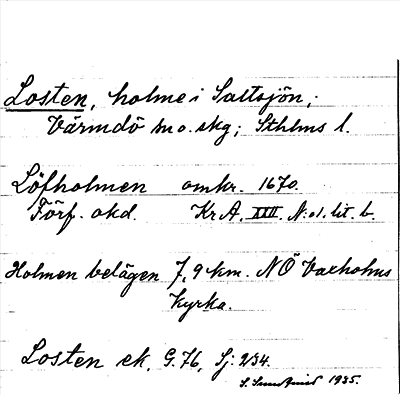 Losten, holme i Saltsjön,
Värmdö m.o. skg; Sthlms l.
Löfholmen omkr. 1670.
Förf. okd. Kr A. XIII. N:o 1. lit. b.
Holmen belägen 7,9 km. NÖ Vaxholms
kyrka.
Losten ek. G. 76, Sj: 234.
1935.